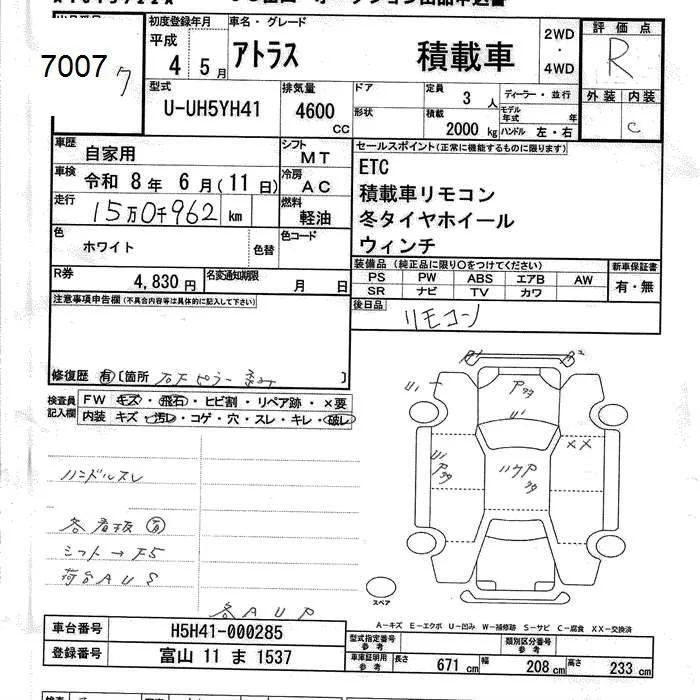 7007
初度登録年月
平成
4 5月
車名・グレード
アトラス 積載車
2WD
・
4WD
評価点
R
外装 内装
C
型式
U-UH5YH41
排気量
4600
CC
ドア
形状
定員
3人
積載
2000kg
ディーラー・並行
モデル
年式 年
ハンドル 左・右
車歴
自家用
車検
令和 8年 6月(11日)
走行
15万0千962 km
色
ホワイト
色替
R券
4,830円
名変通知期限
月 日
シフト
MT
冷房
AC
燃料
軽油
色コード
セールスポイント(正常に機能するものに限ります)
ETC
積載車リモコン
冬タイヤホイール
ウィンチ
装備品(純正品に限り〇をつけてください)
PS PW ABS エアB AW
SR ナビ TV カワ
新車保証書
有・無
後日品
リモコン
注意事項申告欄(不具合内容等は具体的に記入して下さい)
修復歴 有 〔箇所 〕
検査員
記入欄
FW キズ・飛石・ヒビ割・リペア跡・×要
内装 キズ・汚レ・コゲ・穴・スレ・キレ・破レ
ハンドルスレ
各看板
シフト→F5
荷台AUS
各AUP
U1
U1
XX
スペア
A-キズ E-エクボ U-凹み W-補修跡 S-サビ C-腐食 XX-交換済
車台番号 H5H41-000285
登録番号 富山 11 ま 1537
型式指定番号
参考
類別区分番号
参考
車庫証明用
参考
長さ 671cm 幅 208cm 高さ 233cm